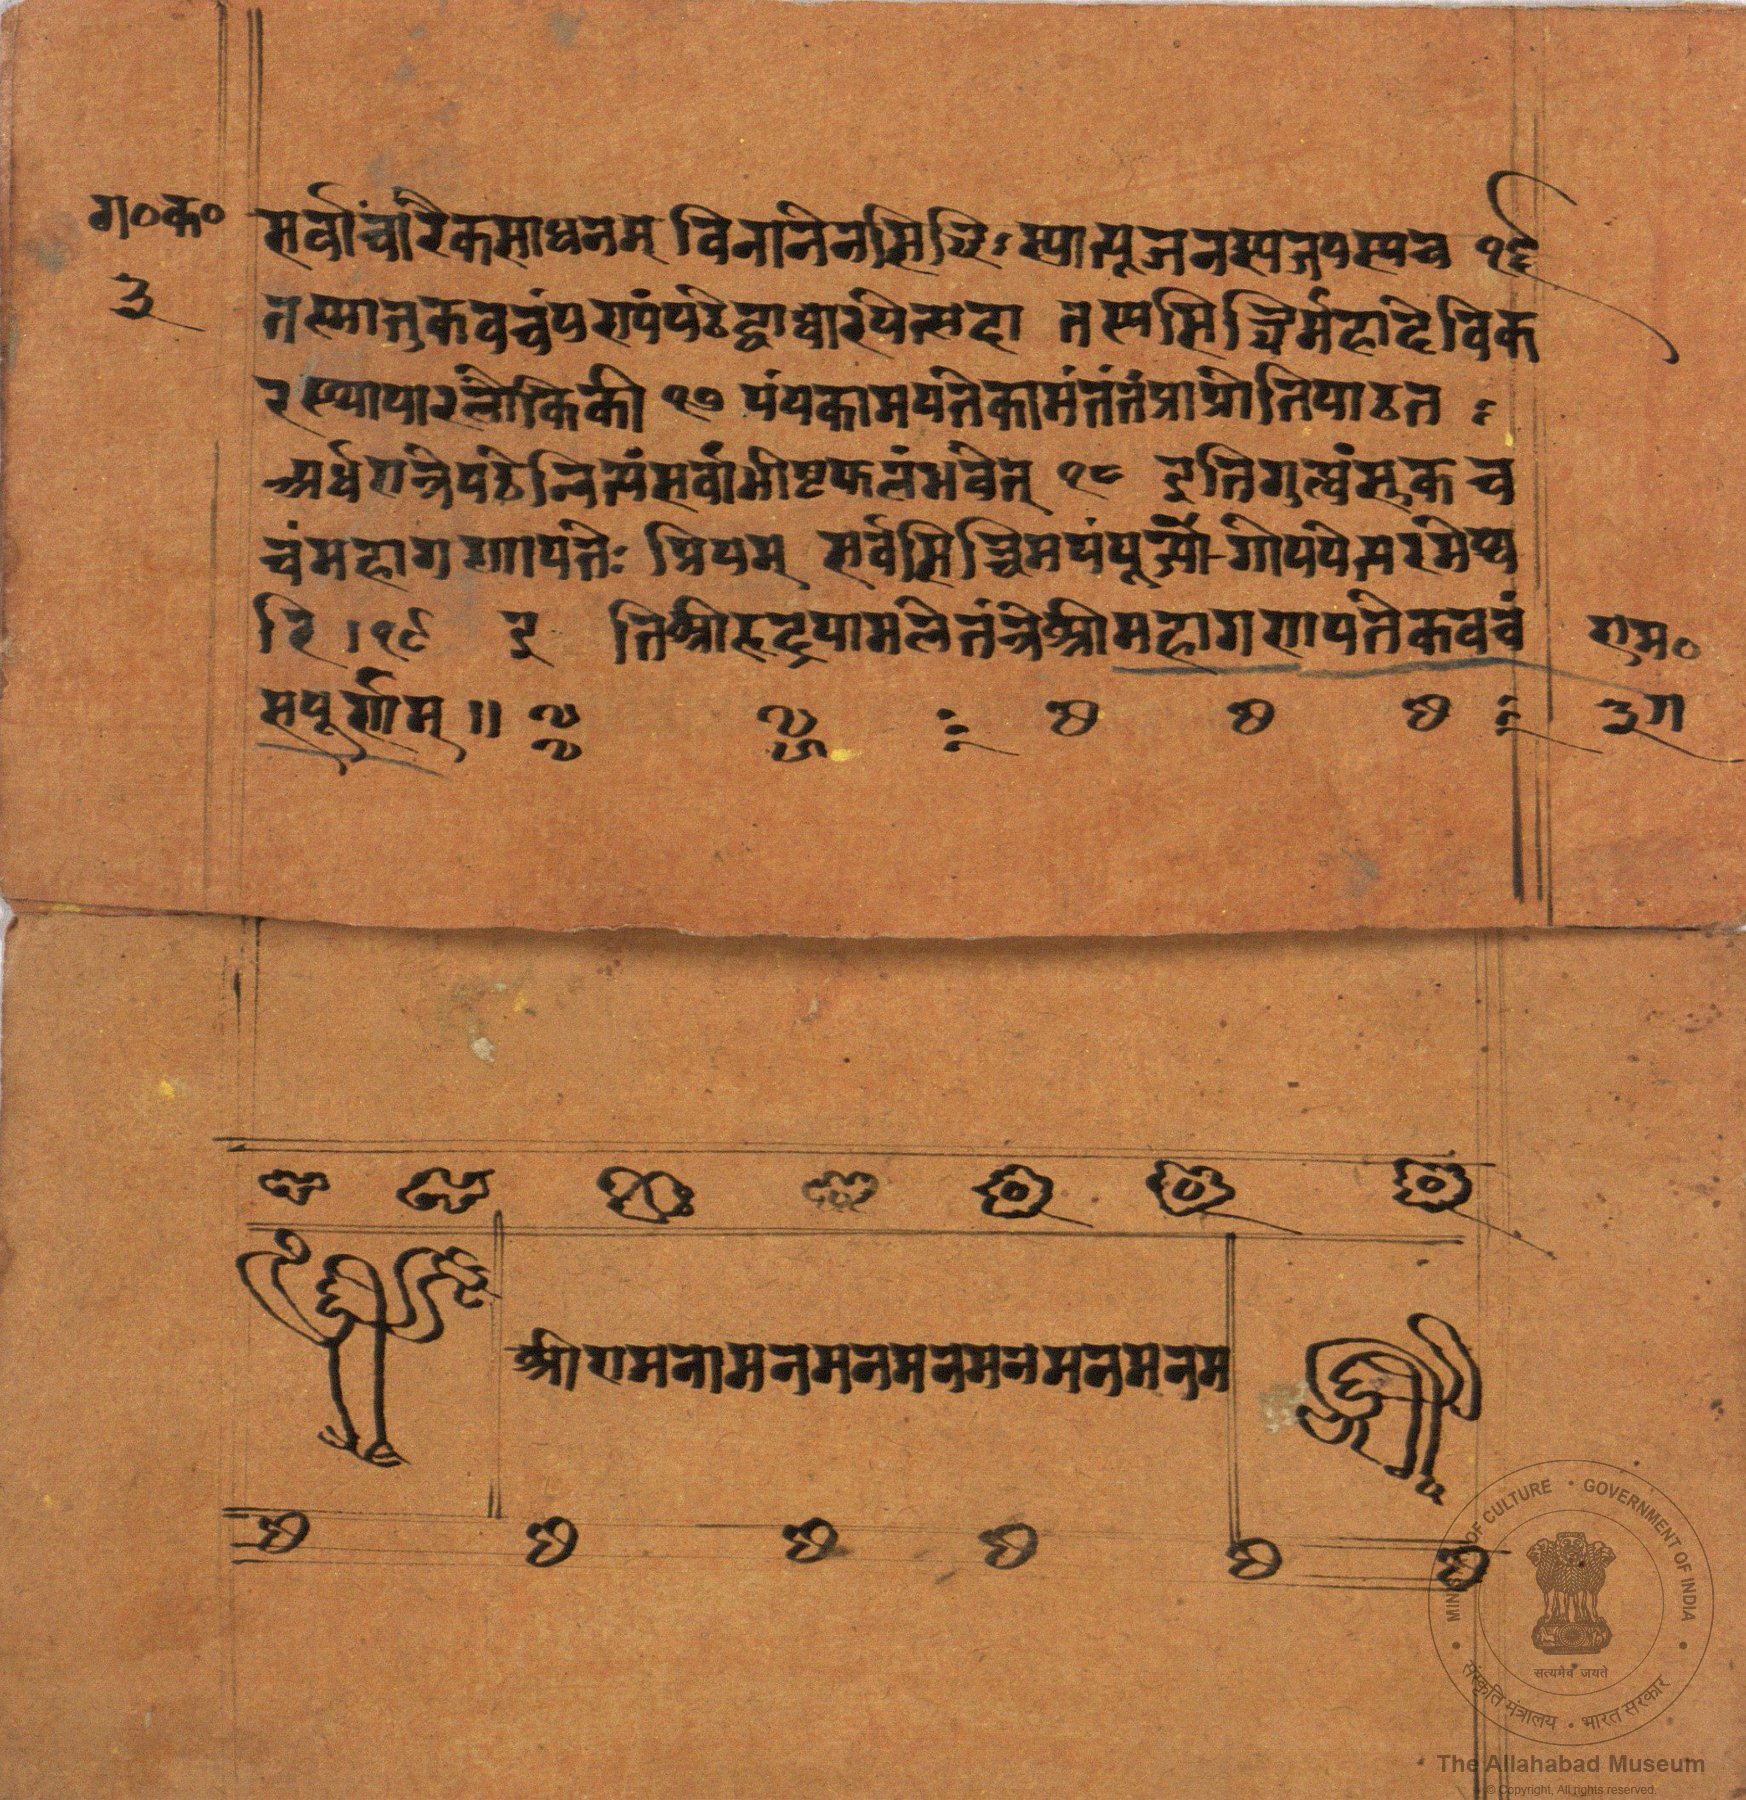 ग०क०
३
सर्वाचारैकसाधनम् विनानेनसिद्धिः स्यात्पूजनस्यजपस्यच १६
तस्मात्तुकवचंपुरायंपठेद्वाधारयेत्सदा तस्यसिद्धिर्महादेविक
रस्थापारलौकिकी १७ यंयंकामयतेकामंतंतंप्राप्नोतिपाठत ः
अर्धरात्रेपठेन्नित्यंसर्वाभीष्टफलंभवेत् १८ इतिगुह्यंसुकव
चंमहागणपतेः प्रियम् सर्वसिद्धिमयं गोपयेत्परमेश्व
रि । १९ इ तिश्रीरुद्रयामलेतंत्रेश्रीमहागणपतेकवचं
सपूर्णम् ॥
राम०
३ग
श्रीरामनामनमनमनमनमनमनम
MINISTRY OF CULTURE • GOVERNMENT OF INDIA
सत्यमेव जयते
संस्कृति मंत्रालय • भारत सरकार
The Allahabad Museum
© Copyright, All rights reserved.